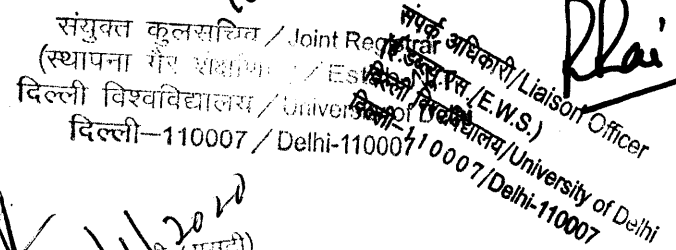 संयुक्त कुलसचिव / Joint Registrar
(स्थापना गैर
दिल्ली विश्वविद्यालय / University of Delhi
दिल्ली–110007 / Delhi-110007
संपर्क अधिकारी/Liaison Officer
/E.W.S.)
दिल्ली विश्वविद्यालय/University of Delhi
दिल्ली–110007/Delhi-110007
RRai
2020